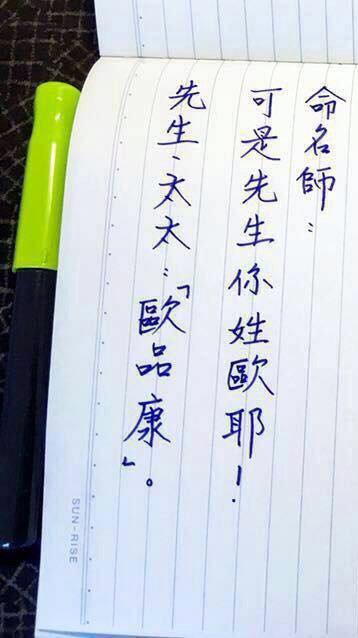 命名師：
可是先生你姓歐耶！
先生、太太：「歐品康」。
SUN-RISE